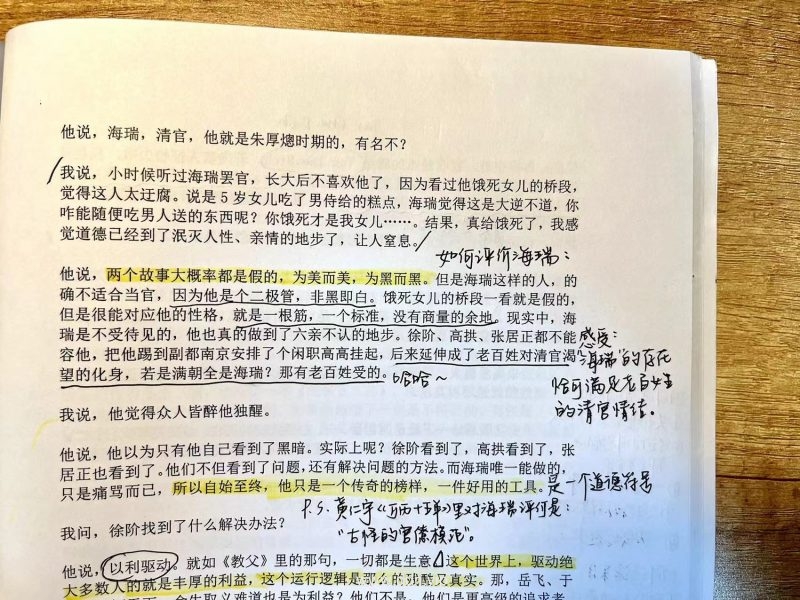 他说，海瑞，清官，他就是朱厚熜时期的，有名不？
我说，小时候听过海瑞罢官，长大后不喜欢他了，因为看过他饿死女儿的桥段，
觉得这人太迂腐。说是 5 岁女儿吃了男侍给的糕点，海瑞觉得这是大逆不道，你
咋能随便吃男人送的东西呢？你饿死才是我女儿……。结果，真给饿死了，我感
觉道德已经到了泯灭人性、亲情的地步了，让人窒息。
如何评价海瑞：
他说，两个故事大概率都是假的，为美而美，为黑而黑。但是海瑞这样的人，的
确不适合当官，因为他是个二极管，非黑即白。饿死女儿的桥段一看就是假的，
但是很能对应他的性格，就是一根筋，一个标准，没有商量的余地。现实中，海
瑞是不受待见的，他也真的做到了六亲不认的地步。徐阶、高拱、张居正都不能
容他，把他踢到副都南京安排了个闲职高高挂起，后来延伸成了老百姓对清官渴
望的化身，若是满朝全是海瑞？那有老百姓受的。
哈哈~
感受：
"海瑞"的存在
恰可满足老百姓
的清官情结。
我说，他觉得众人皆醉他独醒。
他说，他以为只有他自己看到了黑暗。实际上呢？徐阶看到了，高拱看到了，张
居正也看到了。他们不但看到了问题，还有解决问题的方法。而海瑞唯一能做的，
只是痛骂而已，所以自始至终，他只是一个传奇的榜样，一件好用的工具。
是一个道德符号
P.S. 黄仁宇《万历十五年》里对海瑞评价是：
"古怪的官僚模范"。
我问，徐阶找到了什么解决办法？
他说，以利驱动。就如《教父》里的那句，一切都是生意。这个世界上，驱动绝
大多数人的就是丰厚的利益，这个运行逻辑是那么的残酷又真实。那，岳飞、于